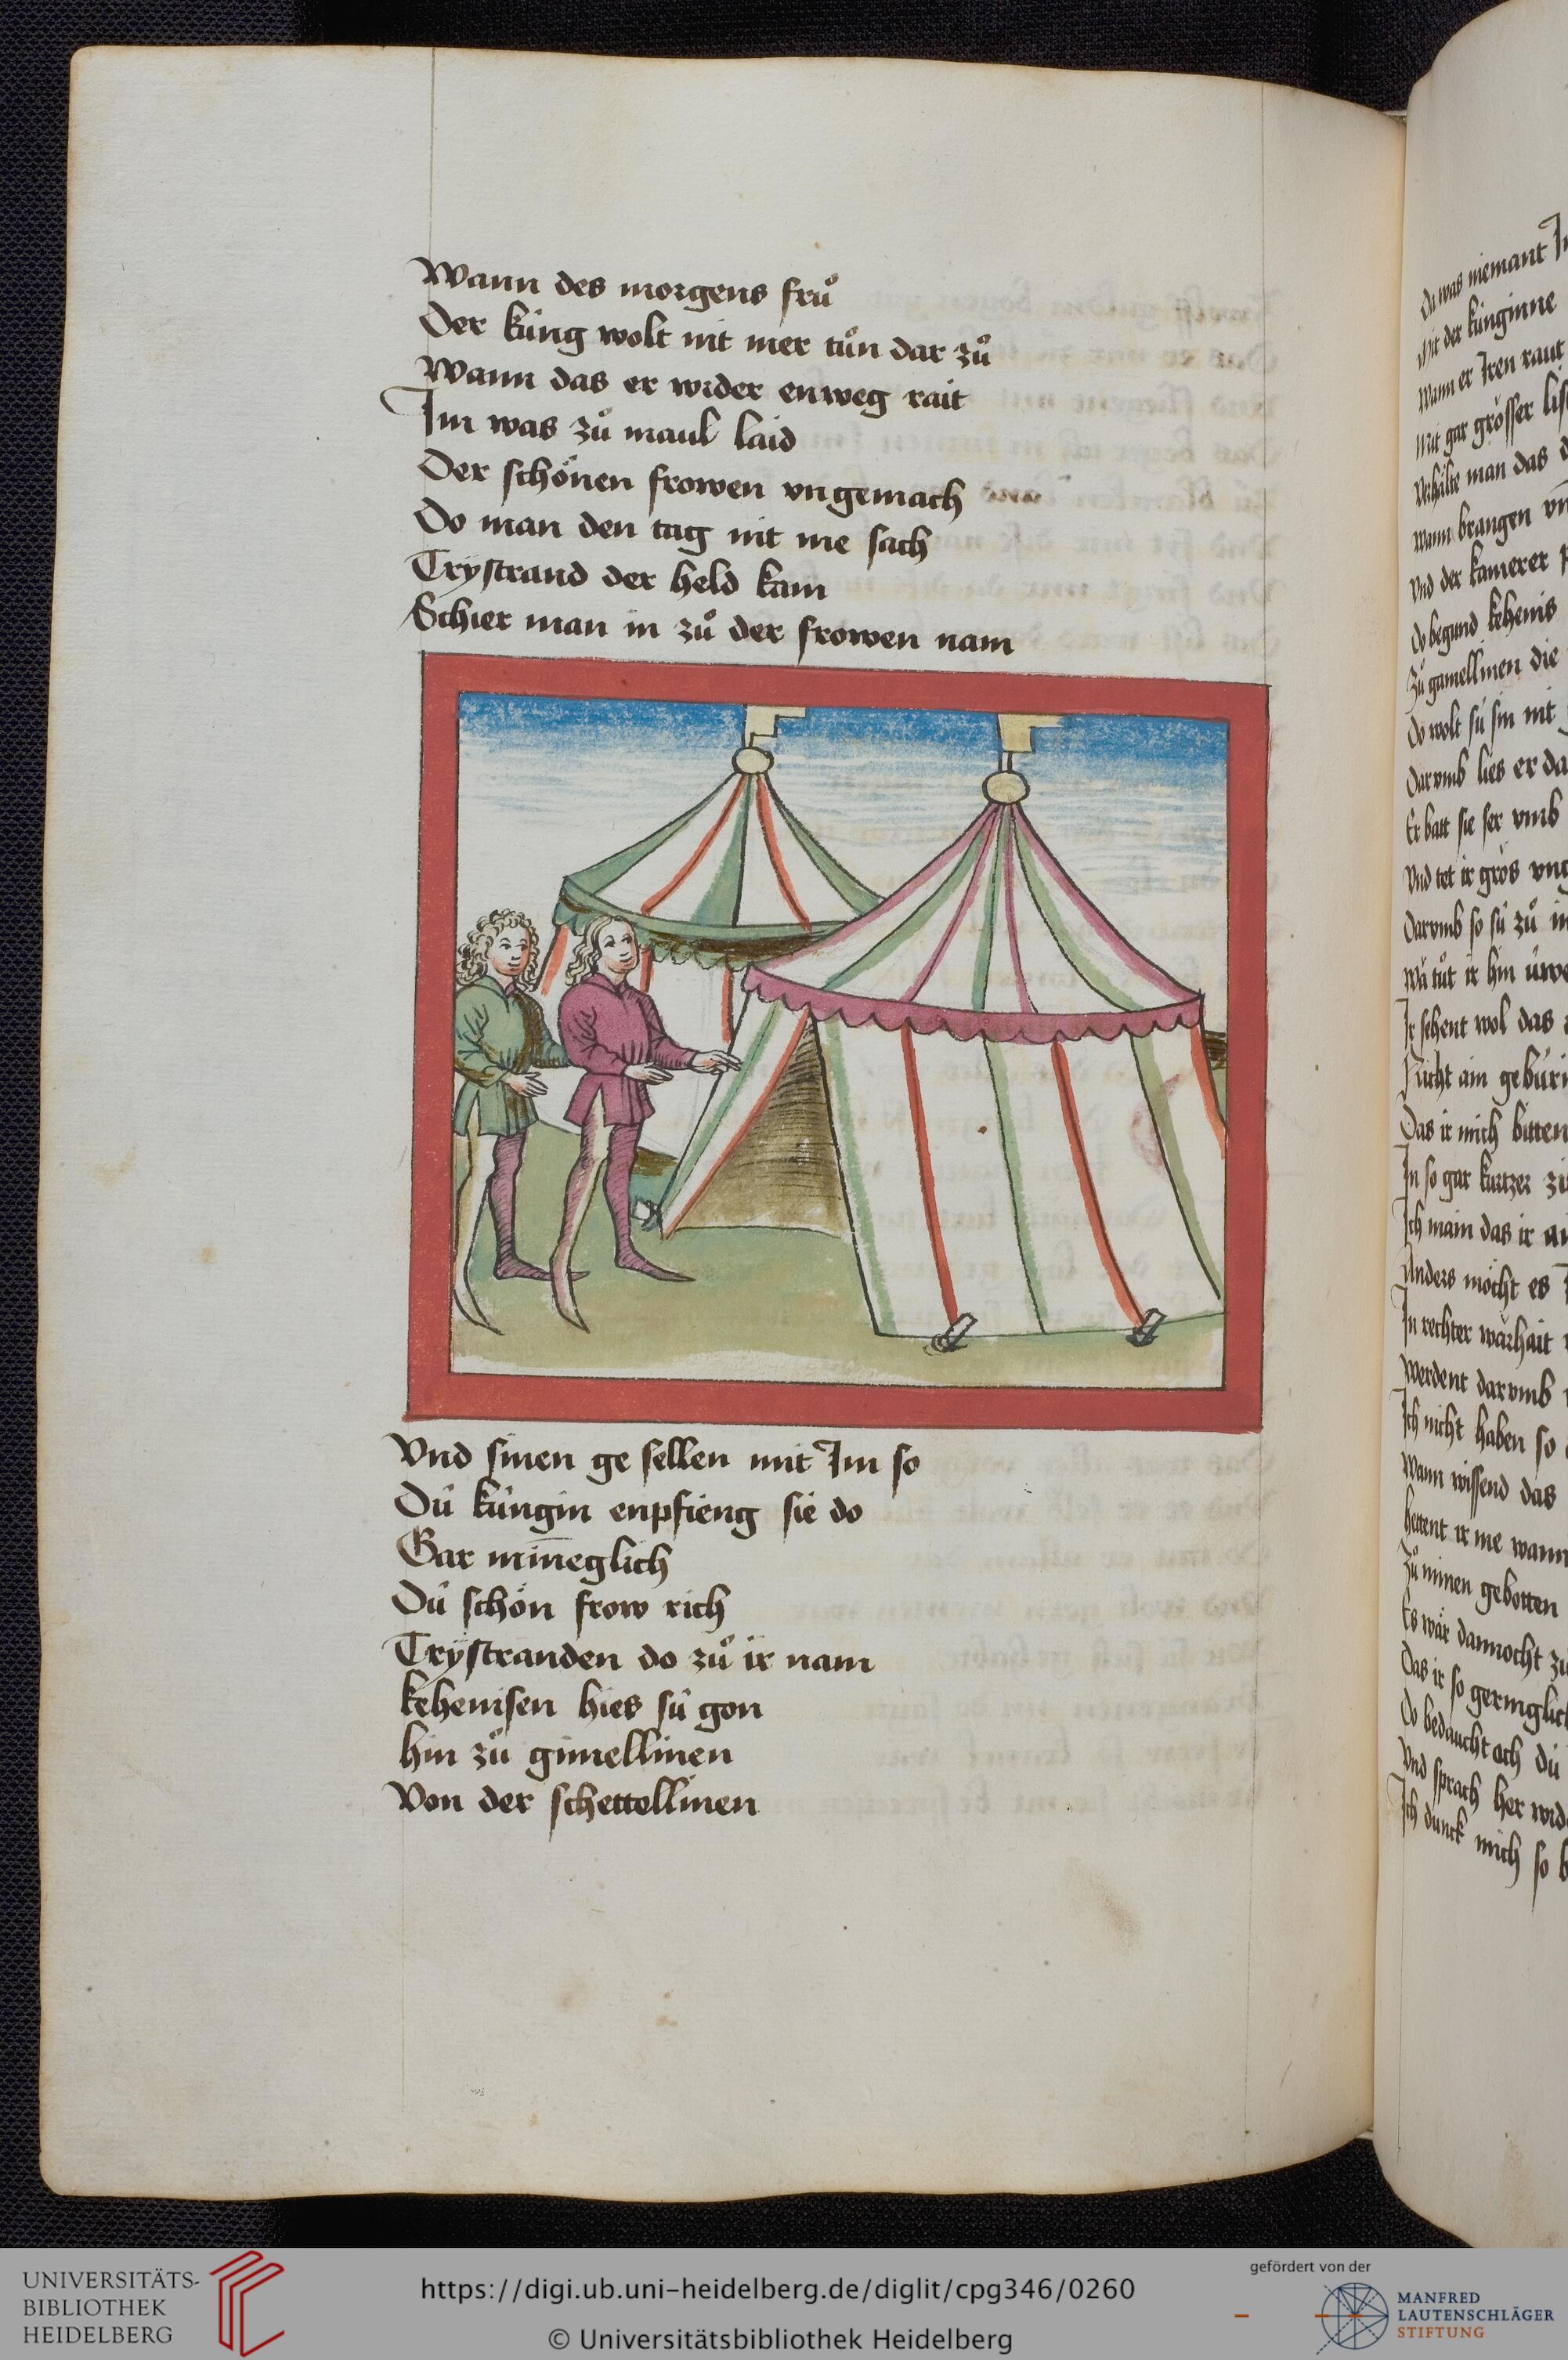 Wann des morgens fruͦ
Der kúng wolt nit mer tuͦn dar zuͦ
Wann das er wider enweg rait
Im was zuͦ maul laid
Der schönen frowen vngemach
Do man den tag nit me sach
Trystrand der held kam
Schier man in zuͦ der frowen nam
Vnd sinen ge sellen mit Im so
Dú kúngin enpfieng sie do
Gar min̄eglich
Dú schön frow rich
Trÿstranden do zuͦ ir nam
kehenisen hies sú gon
hin zuͦ gimellinen
Von der schettellinen
Da was niemant
Mit der kúnginne
Wann er Iren raut
Mit gar grösser
man das
Wann brangen
Vnd der kamerer
Do begund kehenis
Zuͦ gamellinen die
Do wolt sú sin nit
Dar vmb lies er da
Er batt sie ser vmb
Vnd tet ir gros
Darvmb so sú zuͦ
Wa tuͦt ir hin
Ir sehent wol das
Nicht ain
Das ir mich bitten
In so gar kurtzer
Ich main das ir
Anders möcht es
In rechter warhait
Werdent darvmb
Ich nicht haben so
Wann wissend das
Hettent ir me wann
Zuͦ minen gebotten
Es wär dannocht
Das ir so
Do bedaucht och dú
Vnd sprach her
Ich dunck mich so
UNIVERSITÄTS-
BIBLIOTHEK
HEIDELBERG
https://digi.ub.uni-heidelberg.de/diglit/cpg346/0260
© Universitätsbibliothek Heidelberg
gefördert von der
MANFRED
LAUTENSCHLÄGER
STIFTUNG